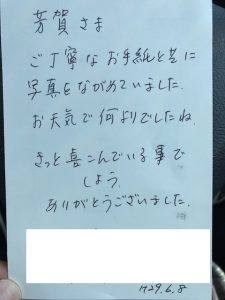 芳賀さま
ご丁寧なお手紙と共に
写真をながめていました.
お天気で何よりでしたね.
きっと喜こんでいる事で
しょう.
ありがとうございました.
H29.6.8